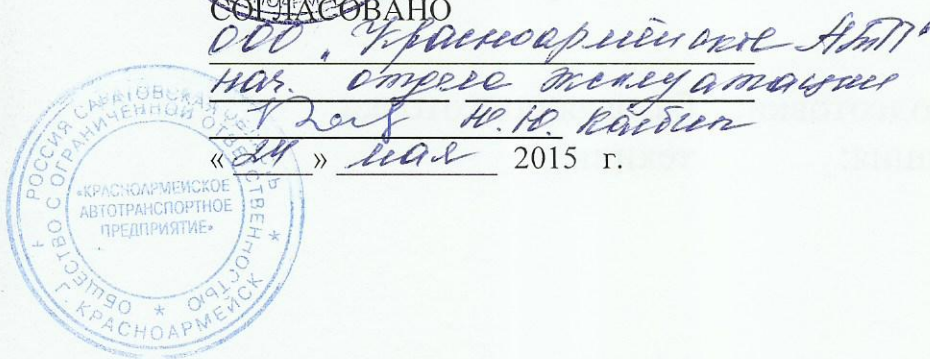 СОГЛАСОВАНО
ООО "Красноармейское АТП"
нач. отдела эксплуатации
Ю.Ю.
« 24 » мая 2015 г.
РОССИЯ САРАТОВСКАЯ ОБЛАСТЬ
ОБЩЕСТВО С ОГРАНИЧЕННОЙ ОТВЕТСТВЕННОСТЬЮ
«КРАСНОАРМЕЙСКОЕ
АВТОТРАНСПОРТНОЕ
ПРЕДПРИЯТИЕ»
Г. КРАСНОАРМЕЙСК